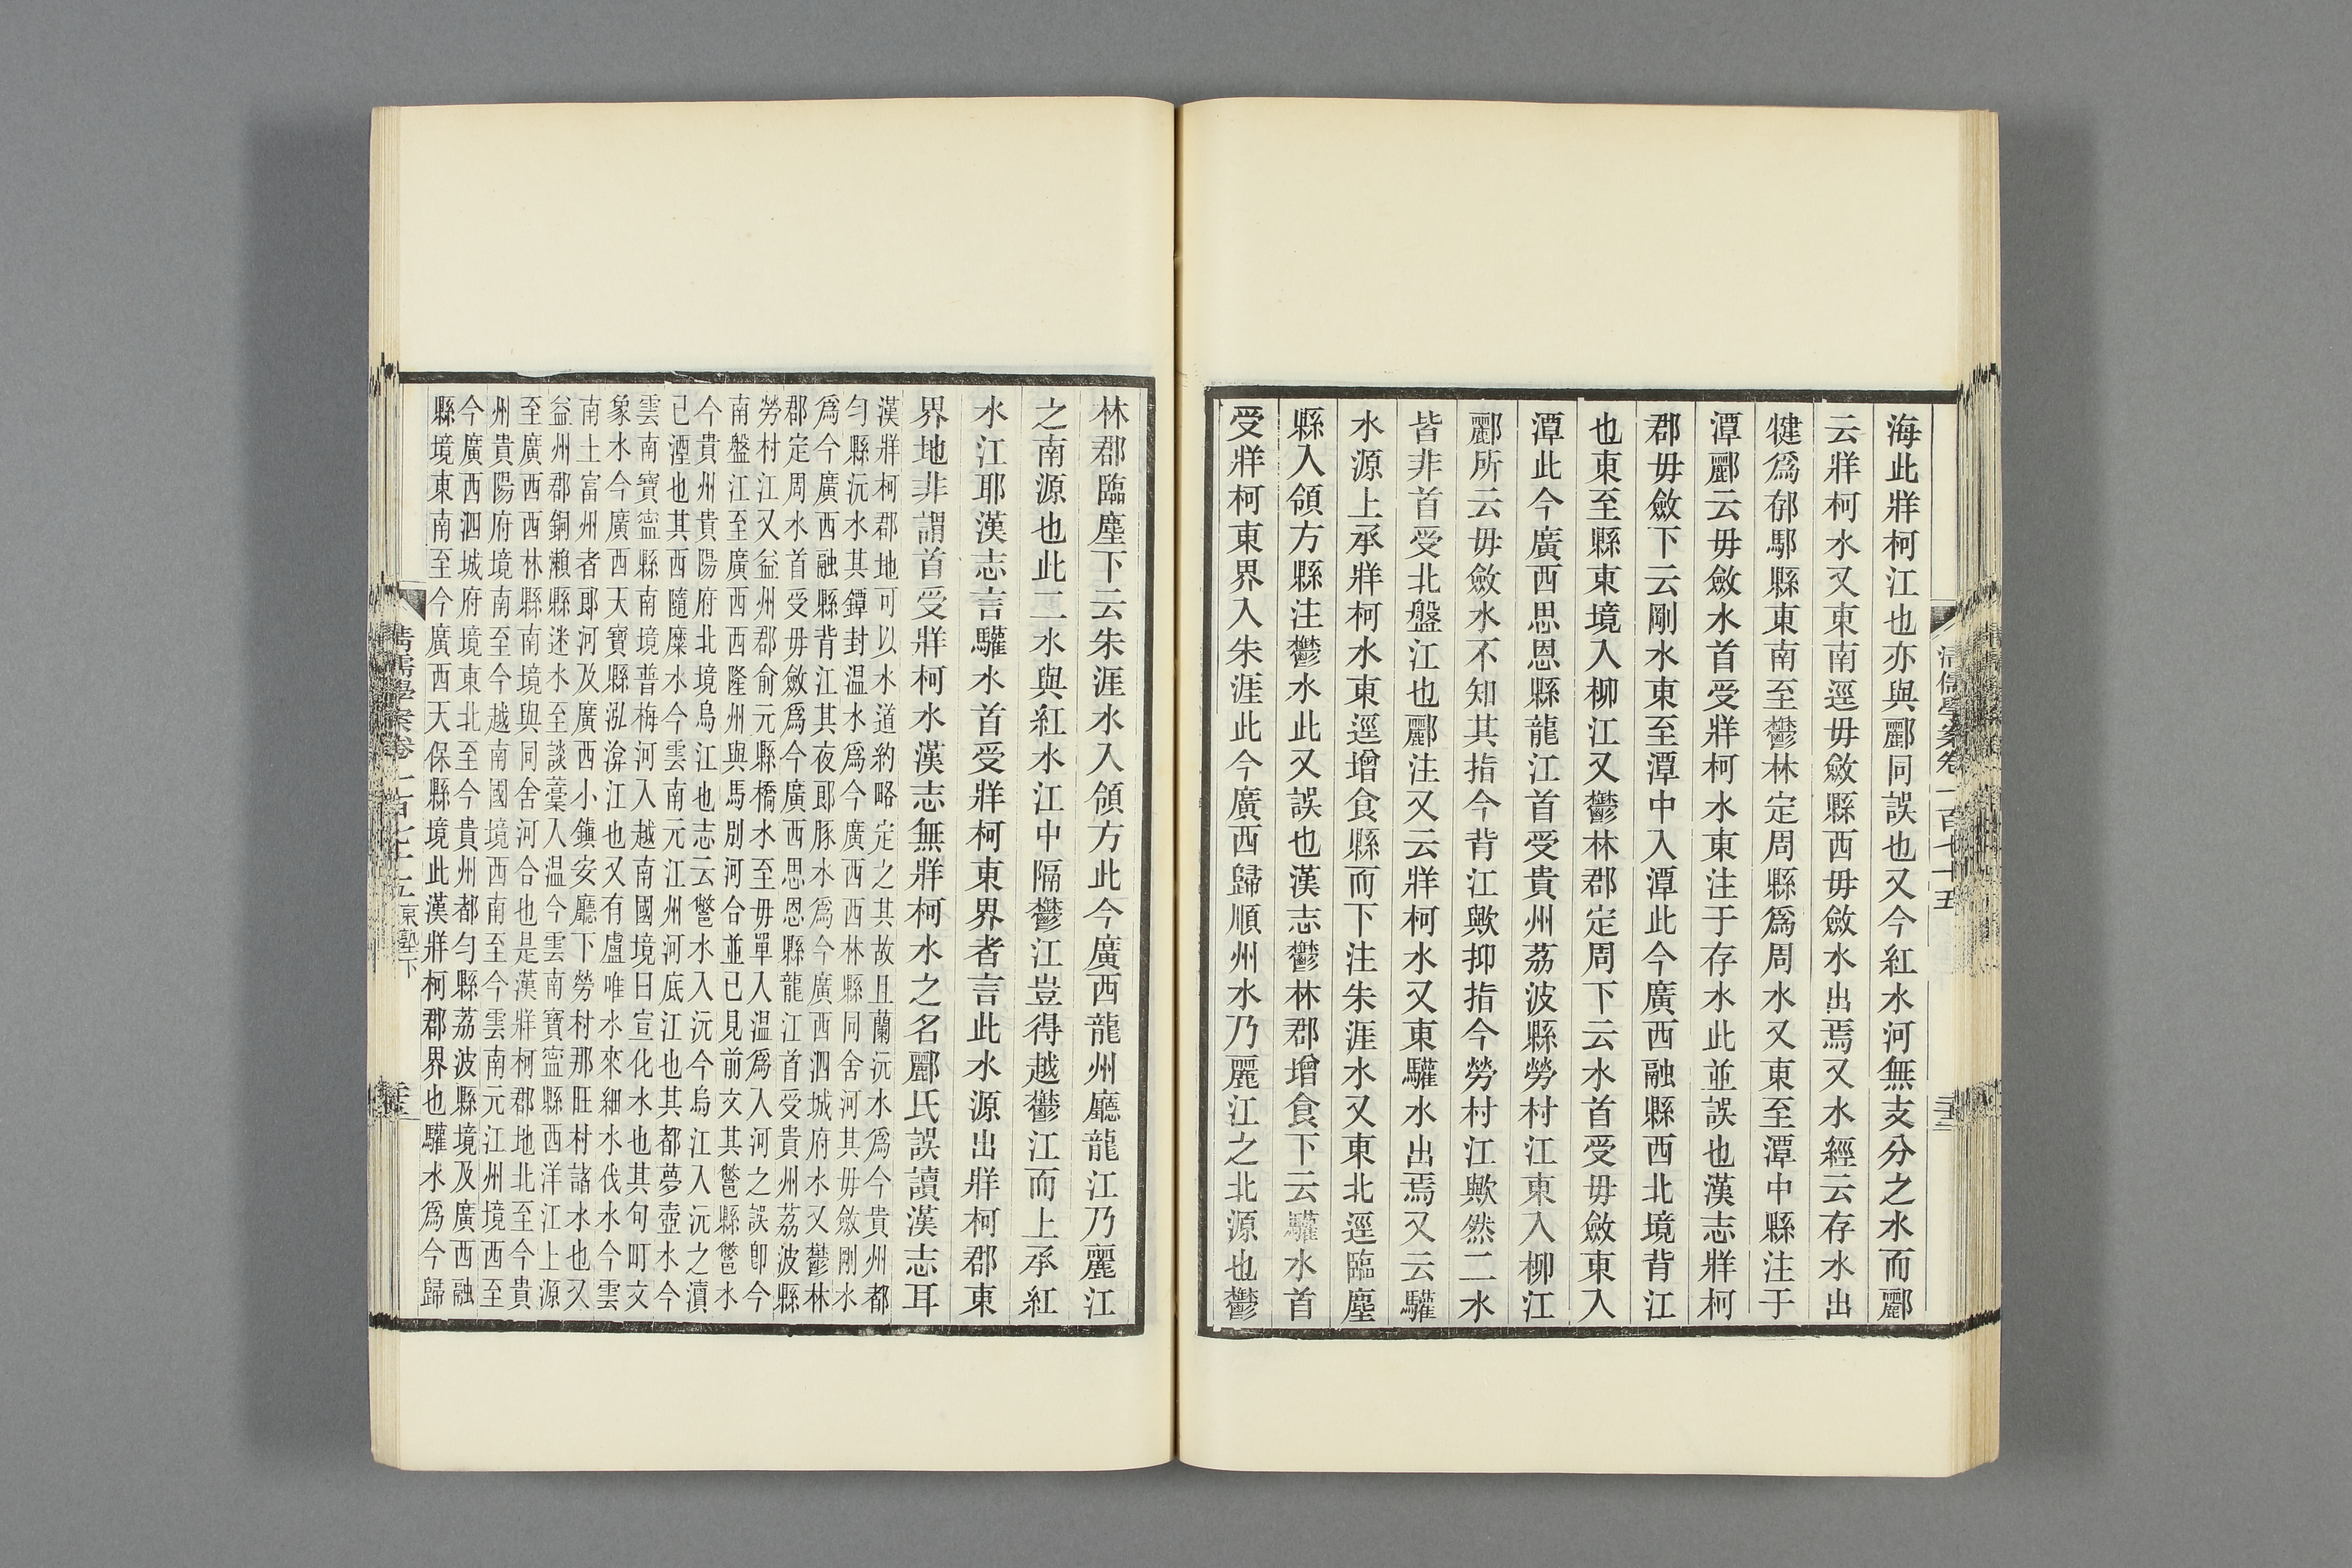 海此牂柯江也亦與酈同誤也又今紅水河無支分之水而酈
云牂柯水又東南逕毋斂縣西毋斂水出焉又水經云存水出
犍爲郁鄢縣東南至鬱林定周縣爲周水又東至潭中縣注于
潭酈云毋斂水首受牂柯水東注于存水此並誤也漢志牂柯
郡毋斂下云剛水東至潭中入潭此今廣西融縣西北境背江
也東至縣東境入柳江又鬱林郡定周下云水首受毋斂東入
潭此今廣西思恩縣龍江首受貴州荔波縣勞村江東入柳江
酈所云毋斂水不知其指今背江歟抑指今勞村江歟然二水
皆非首受北盤江也酈注又云牂柯水又東驩水出焉又云驩
水源上承牂柯水東逕增食縣而下注朱涯水又東北逕臨塵
縣入領方縣注鬱水此又誤也漢志鬱林郡增食下云驩水首
受牂柯東界入朱涯此今廣西歸順州水乃麗江之北源也鬱
清儒學案卷一百七十五
林郡臨塵下云朱涯水入領方此今廣西龍州廳龍江乃麗江
之南源也此二水與紅水江中隔鬱江豈得越鬱江而上承紅
水江耶漢志言驩水首受牂柯東界者言此水源出牂柯郡東
界地非謂首受牂柯水漢志無牂柯水之名酈氏誤讀漢志耳
漢牂柯郡地可以水道約略定之其故且蘭沅水爲今貴州都
勻縣沅水其鐔封温水爲今廣西西林縣同舍河其毋斂剛水
爲今廣西融縣背江其夜郎豚水爲今廣西泗城府水又鬱林
郡定周水首受毋斂爲今廣西思恩縣龍江首受貴州荔波縣
勞村江又益州郡俞元縣橋水至毋單入温爲入河之誤卽今
南盤江至廣西西隆州與馬別河合並已見前文其鄨縣鄨水
今貴州貴陽府北境烏江也志云鄨水入沅今烏江入沅之瀆
已湮也其西隨麋水今雲南元江州河底江也其都夢壺水今
雲南寶寧縣南境普梅河入越南國境曰宣化水也其句町文
象水今廣西天寶縣泓渰江也又有盧唯水來細水伐水今雲
南土富州者郎河及廣西小鎮安廳下勞村那旺村諸水也又
益州郡銅瀨縣迷水至談虆入温今雲南寶寧縣西洋江上源
至廣西西林縣南境與同舍河合也是漢牂柯郡地北至今貴
州貴陽府境南至今越南國境西南至今雲南元江州境西至
今廣西泗城府境東北至今貴州都勻縣荔波縣境及廣西融
縣境東南至今廣西天保縣境此漢牂柯郡界也驩水爲今歸
清儒學案卷一百七十五